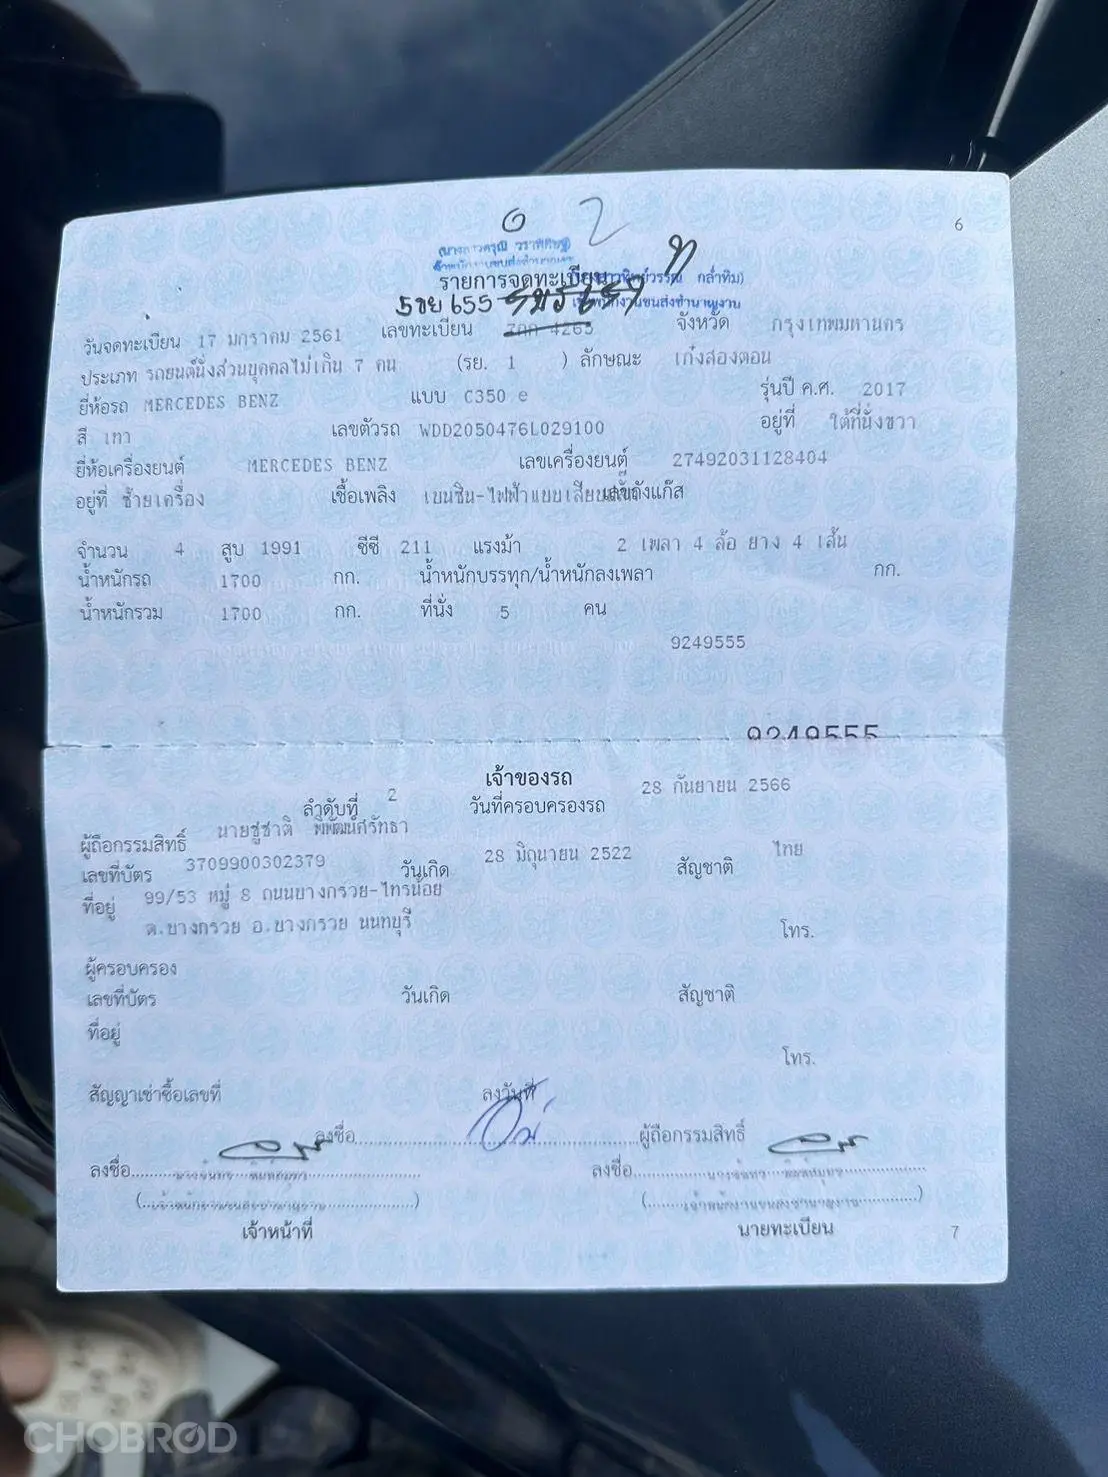 6
รายการจดทะเบียน กล่ำทิม)
5ขย 655 เจ้าพนักงานขนส่งชำนาญงาน
วันจดทะเบียน 17 มกราคม 2561 เลขทะเบียน 4265 จังหวัด กรุงเทพมหานคร
ประเภท รถยนต์นั่งส่วนบุคคลไม่เกิน 7 คน (รย. 1 ) ลักษณะ เก๋งสองตอน
ยี่ห้อรถ MERCEDES BENZ แบบ C350 e รุ่นปี ค.ศ. 2017
สี เทา เลขตัวรถ WDD2050476L029100 อยู่ที่ ใต้ที่นั่งขวา
ยี่ห้อเครื่องยนต์ MERCEDES BENZ เลขเครื่องยนต์ 27492031128404
อยู่ที่ ซ้ายเครื่อง เชื้อเพลิง เบนซิน-ไฟฟ้าแบบเสียบปลั๊ก เลขถังแก๊ส
จำนวน 4 สูบ 1991 ซีซี 211 แรงม้า 2 เพลา 4 ล้อ ยาง 4 เส้น
น้ำหนักรถ 1700 กก. น้ำหนักบรรทุก/น้ำหนักลงเพลา กก.
น้ำหนักรวม 1700 กก. ที่นั่ง 5 คน
9249555
9249555
เจ้าของรถ
ลำดับที่ 2 วันที่ครอบครองรถ 28 กันยายน 2566
ผู้ถือกรรมสิทธิ์ นายชูชาติ พิพัฒน์ศรัทธา
เลขที่บัตร 3709900302379 วันเกิด 28 มิถุนายน 2522 สัญชาติ ไทย
ที่อยู่ 99/53 หมู่ 8 ถนนบางกรวย-ไทรน้อย
ต.บางกรวย อ.บางกรวย นนทบุรี โทร.
ผู้ครอบครอง
เลขที่บัตร วันเกิด สัญชาติ
ที่อยู่
โทร.
สัญญาเช่าซื้อเลขที่ ลงวันที่
ลงชื่อ ผู้ถือกรรมสิทธิ์
ลงชื่อ ลงชื่อ
เจ้าหน้าที่ นายทะเบียน
7
CHOBROD